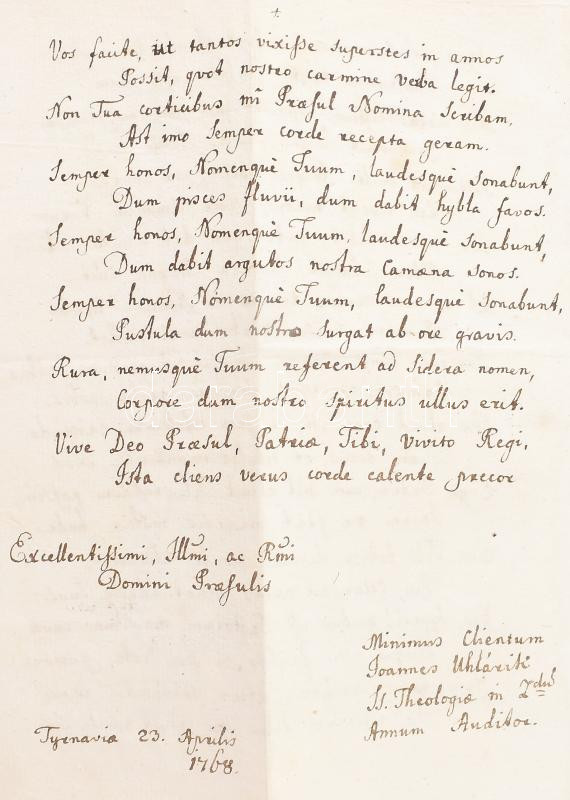 +
Vos facite, ut tantos vixisse superstes in annos
Possit, quot nostro carmine verba legit.
Non Tua corticibus mî Præsul Nomina Scribam,
Ast imo Semper corde recepta geram.
Semper honos, Nomenquè Tuum, laudesquè Sonabunt,
Dum pisces fluvii, dum dabit hybla favos.
Semper honos, Nomenquè Tuum, laudesquè Sonabunt,
Dum dabit argutos nostra Camæna Sonos.
Semper honos, Nomenquè Tuum, laudesquè Sonabunt,
Pustula dum nostro surgat ab ore gravis.
Rura, nemusquè Tuum referent ad Sidera nomen,
Corpore dum nostro Spiritus ullus erit.
Vive Deo Præsul, Patriæ, Tibi, vivito Regi,
Ista cliens verus corde calente precor
Excellentissimi, Illmi, ac Rmi
Domini Præsulis
Minimus Clientum
Joannes Uhlárik
Ss. Theologiæ in 2dum
Annum Auditor.
Tyrnaviæ 23. Aprilis
1768.